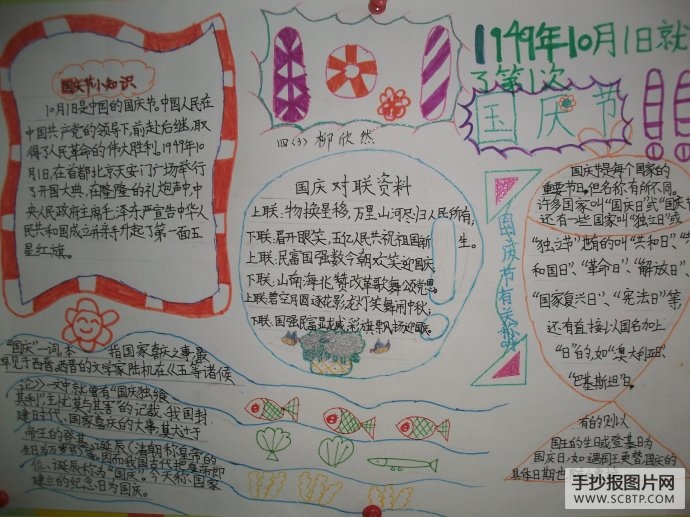 国庆节小知识
10月1日是中国的国庆节。中国人民在
中国共产党的领导下,前赴后继,取
得了人民革命的伟大胜利。1949年10
月1日,在首都北京天安门广场举行
了开国大典,在隆隆的礼炮声中,中
央人民政府主席毛泽东严宣告中华人
民共和国成立并亲手升起了第一面五
星红旗。
四(3) 柳欣然
1949年10月1日就
了第1次
国庆节
国庆对联资料
上联:物换星移,万里山河尽归人民所有,
下联:眉开眼笑,五亿人民共祝祖国新生。
上联:民富国强数今朝欢笑迎国庆,
下联:山南海北赞改革歌舞颂党恩。
上联:碧空月圆逐花影龙灯笑舞闹中秋;
下联:国强民富显龙威,彩旗飘扬迎国
国庆节有关
国庆节是每个国家的
重要节日,但名称有所不同。
许多国家叫“国庆日”或“国庆节
还有一些国家叫“独立日”或
“独立节”也有的叫“共和日”、“共
和国日”、“革命日”、“解放日”、
“国家复兴日”、“宪法日”等
还有直接以国名加上
“日”的,如“澳大利亚日”、
“巴基斯坦日”。
有的则以
国王的生日或登基日为
国庆日,如遇国王更替,国庆的
具体日期也
“国庆”一词,本 指国家喜庆之事,最
早见于西晋。西晋的文学家陆机在《五等诸侯
论》一文中就曾有“国庆独飨
其利,主忧莫与其害”的记载、我国封
建时代、国家喜庆的大事,莫大过于
帝王的登基、诞辰(清朝称皇帝的
生日为万岁节)因而我国古代把皇帝即
位、诞辰称为“国庆”。今天称国家
建立的纪念日为国庆。
手抄报图片网
WWW.SCBTP.COM